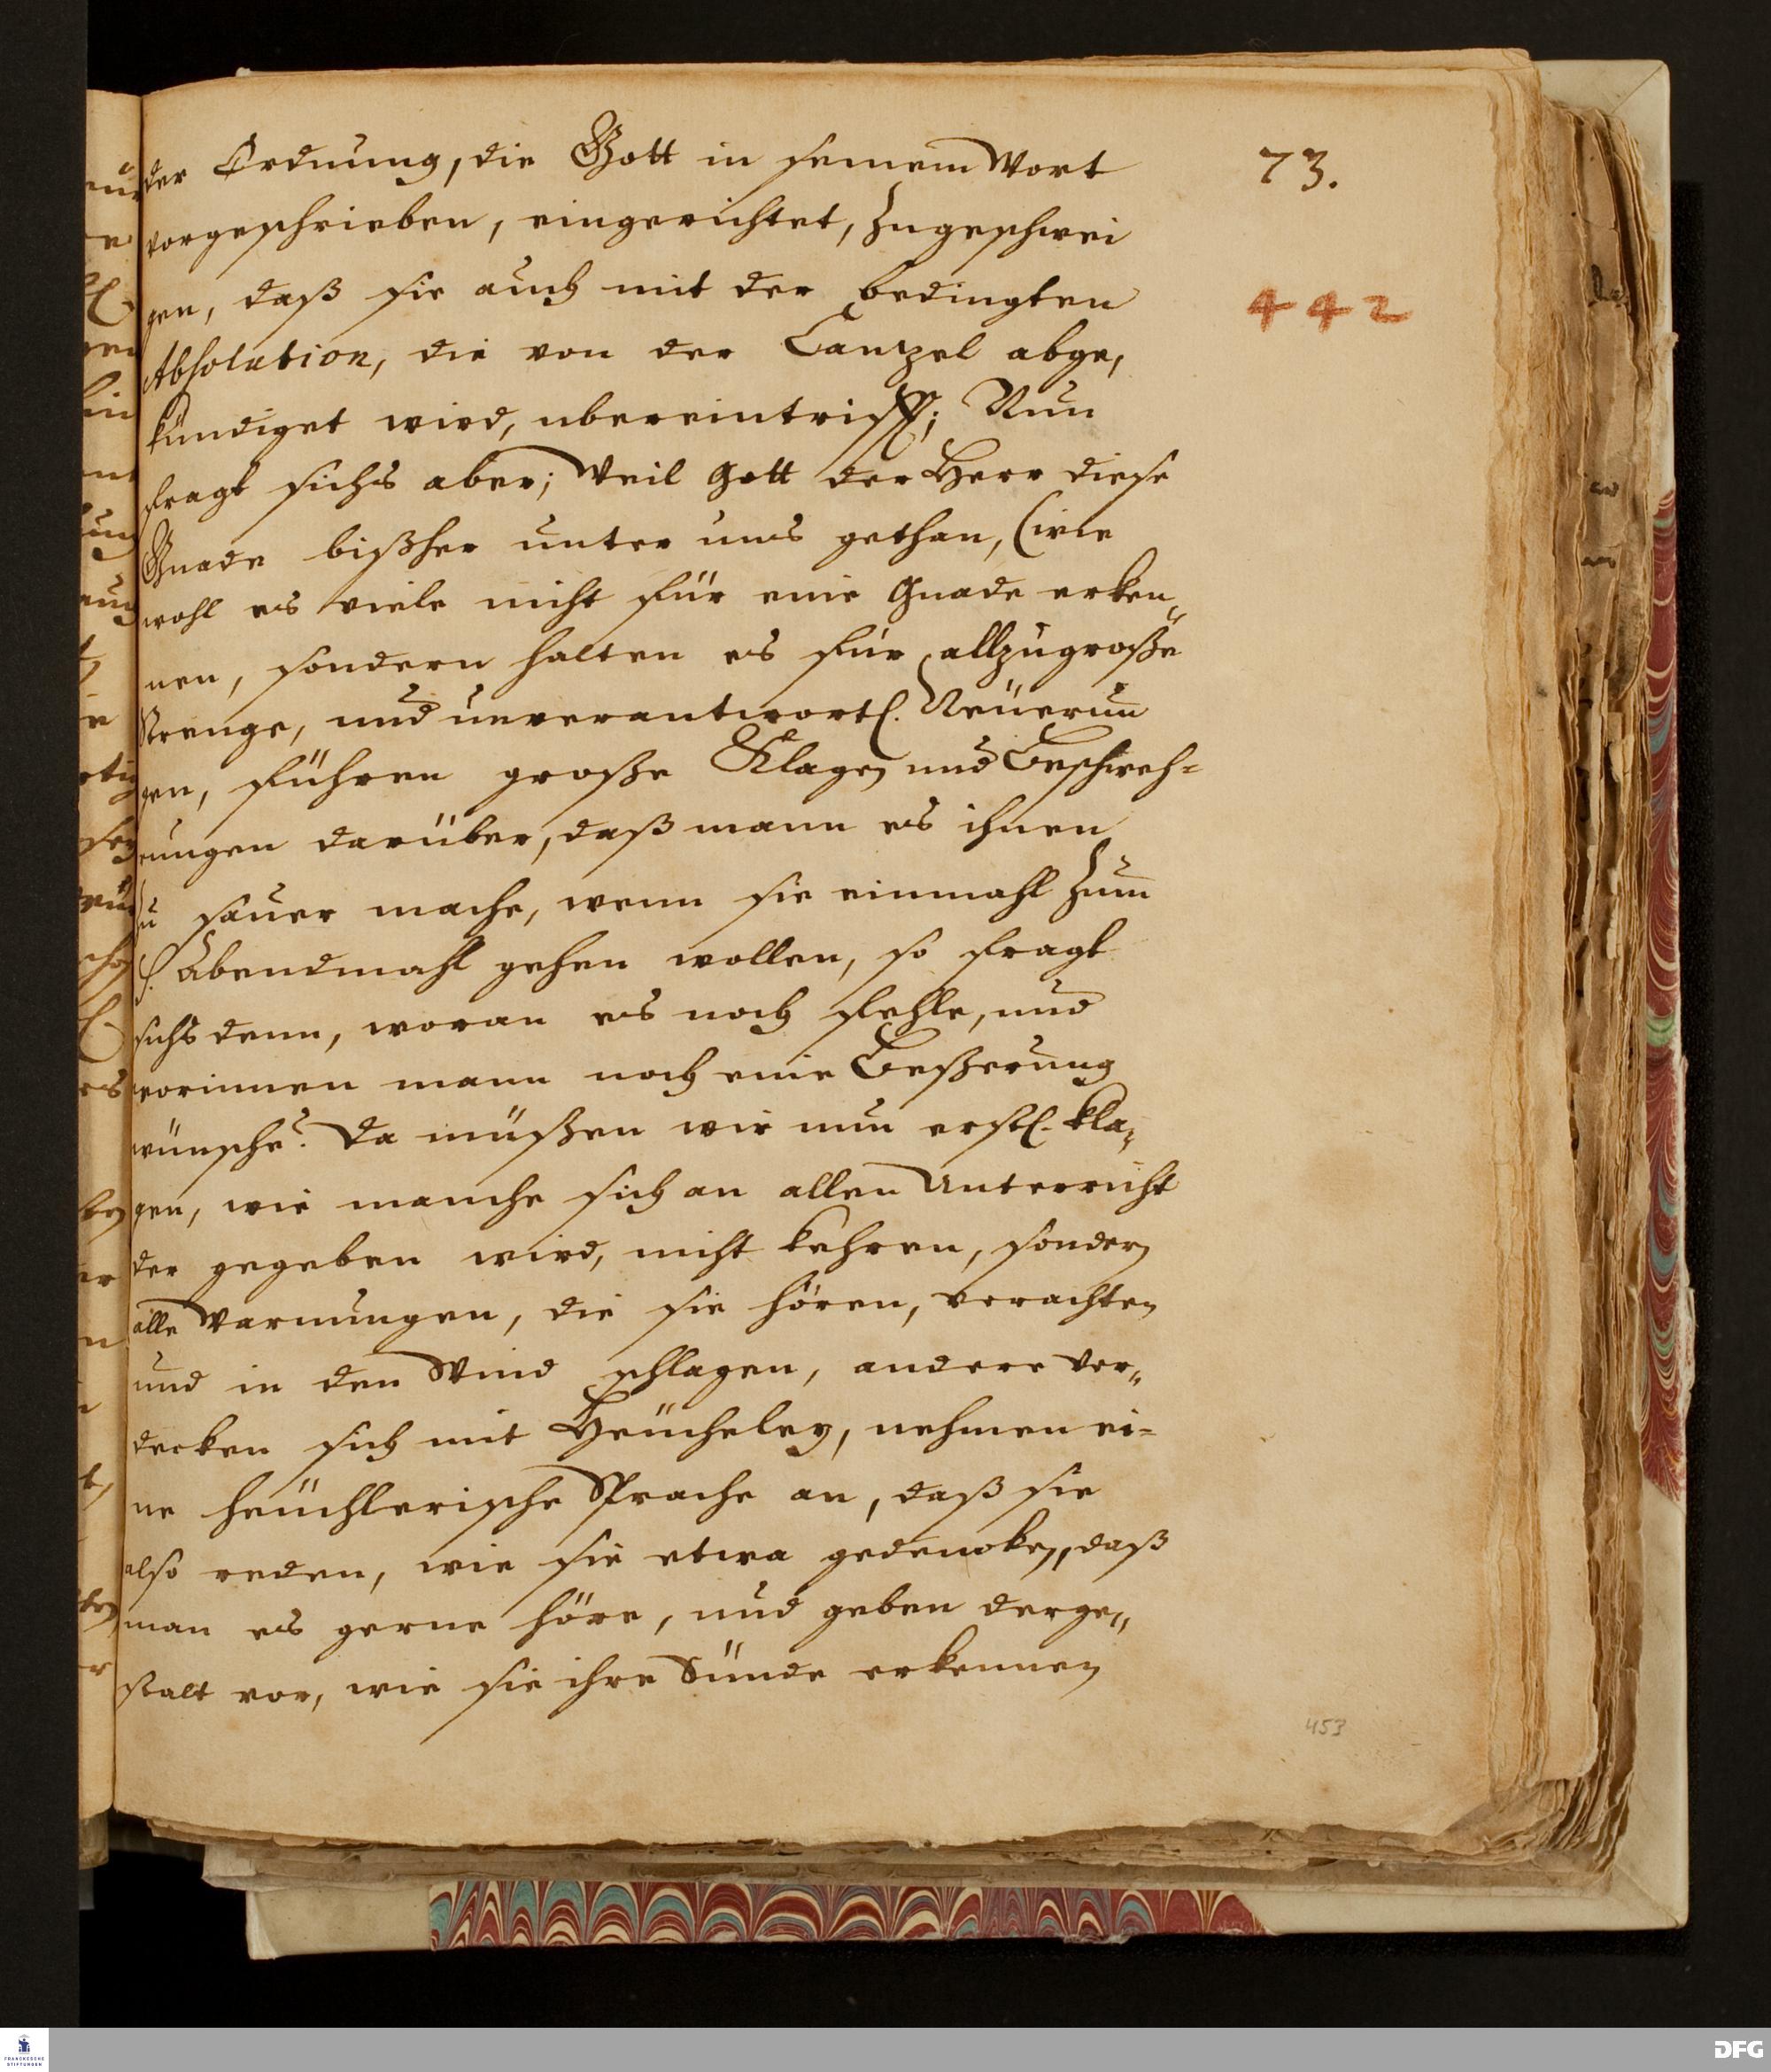 73.
442
der Ordnung, die Gott in seinem Wort
vorgeschrieben, eingerichtet, zugeschwei
gen, daß sie auch mit der bedingten
Absolution, die von der Cantzel abge,
kündiget wird, ubereintriff; Nun
fragt sichs aber; Weil Gott der Herr diese
Gnade bißher unter uns gethan, (wie
wohl es viele nicht für eine Gnade erken„
nen, sondern halten es für allzugroße
Strenge, und unverantwortl. Neüerun
gen, führen große Klagen und Beschweh=
rungen darüber, daß mann es ihnen
zu sauer mache, wenn sie einmahl zum
H. Abendmahl gehen wollen, so fragt
sichs denn, woran es noch fehle, und
worinnen mann noch eine Beßerung
wünsche? Da müßen wir nun erstl. kla„
gen, wie manche sich an allen Unterricht
der gegeben wird, nicht kehren, sondern
alle Warnungen, die sie hören, verachten
und in den Wind schlagen, andere ver„
decken sich mit Heücheley, nehmen ei=
ne heüchlerische Sprache an, daß sie
also reden, wie sie etwa gedencken, daß
man es gerne höre, und geben derge„
stalt vor, wie sie ihre Sünde erkennen
453
FRANCKESCHE
STIFTUNGEN
DFG